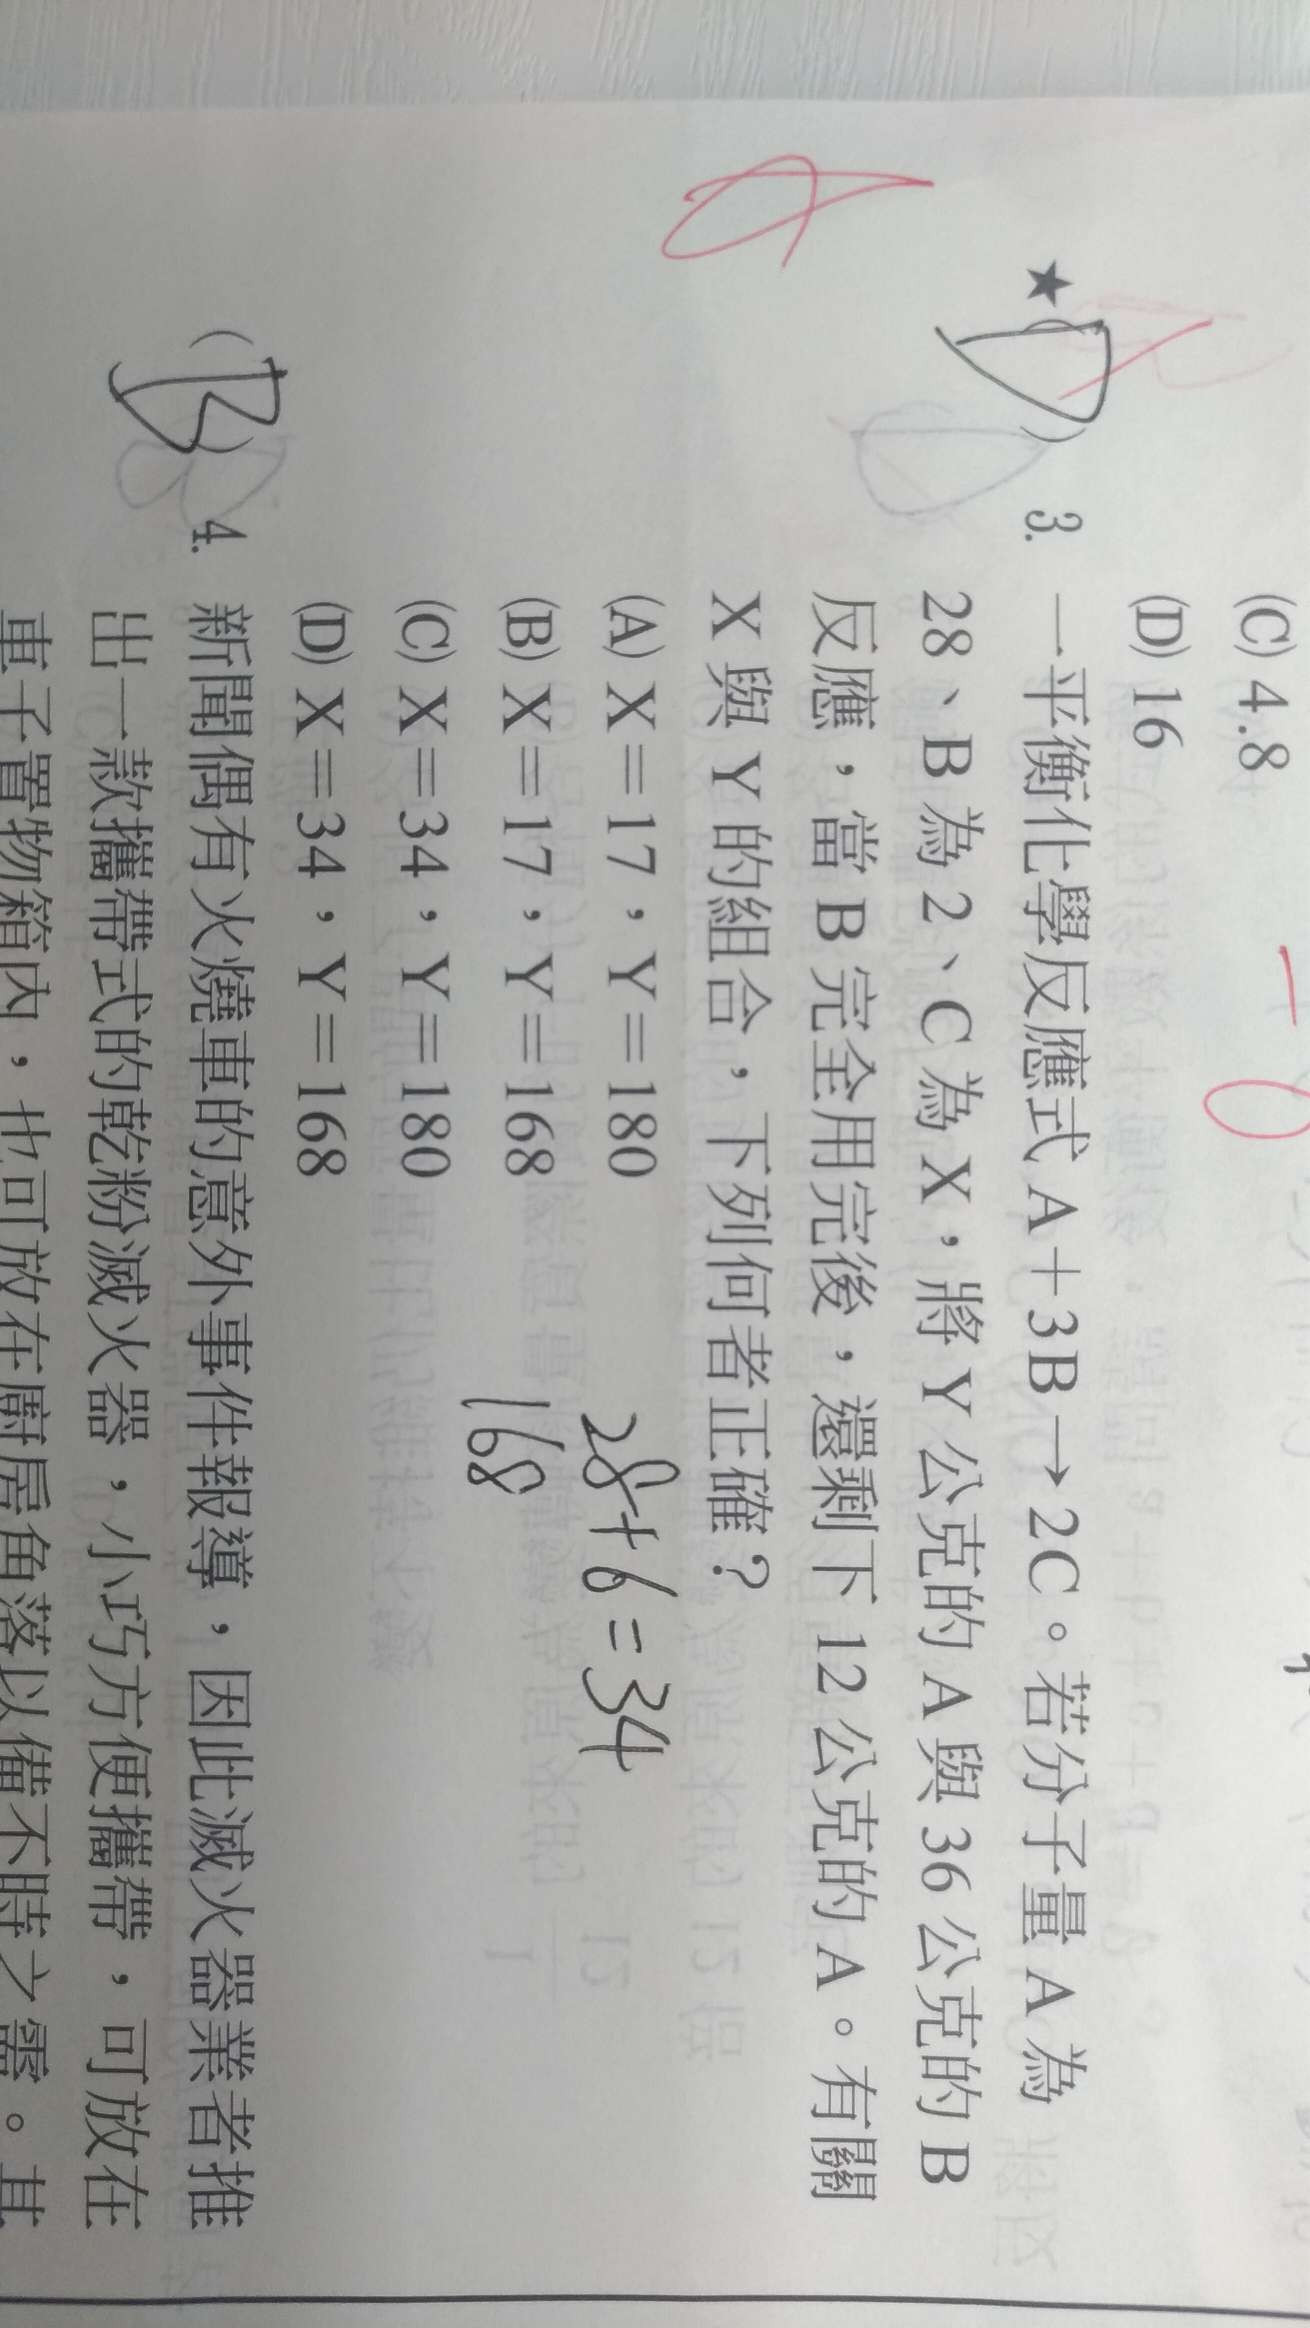 (C) 4.8
(D) 16
★(D) 3. 一平衡化學反應式 A＋3B→2C。若分子量 A 為
28、B 為 2、C 為 X，將 Y 公克的 A 與 36 公克的 B
反應，當 B 完全用完後，還剩下 12 公克的 A。有關
X 與 Y 的組合，下列何者正確？
(A) X＝17，Y＝180
28+6=34
(B) X＝17，Y＝168
168
(C) X＝34，Y＝180
(D) X＝34，Y＝168
(B) 4. 新聞偶有火燒車的意外事件報導，因此滅火器業者推
出一款攜帶式的乾粉滅火器，小巧方便攜帶，可放在
車子置物箱內，也可放在廚房角落以備不時之需。其